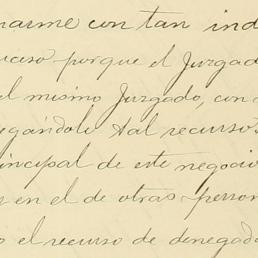 marme con tan ind
uceso porque el Juzgad
el mismo Juzgado, con
egándole tal recurso
incipal de este negocio
en el de otras person
o el recurso de denegad